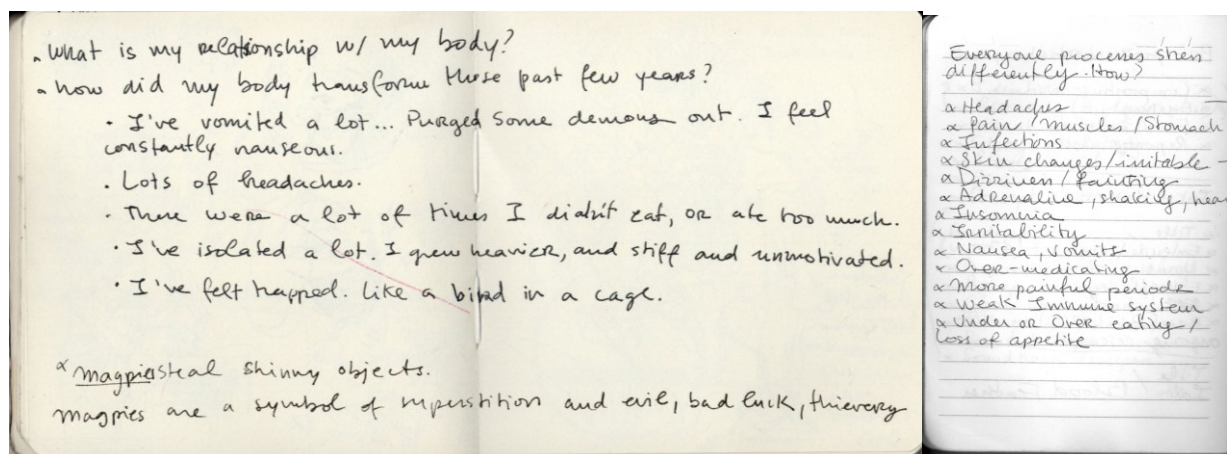 . What is my relationship w/ my body?
. how did my body transform these past few years?
· I've vomited a lot... Purged some demons out. I feel
constantly nauseous.
· Lots of headaches.
· There were a lot of times I didn't eat, or ate too much.
· I've isolated a lot. I grew heavier, and stiff and unmotivated.
· I've felt trapped. Like a bird in a cage.
∝ magpies steal shinny objects.
magpies are a symbol of superstition and evil, bad luck, thievery
Everyone processes stress
differently. How?
∝ Headaches
∝ Pain / muscles / Stomach
∝ Infections
∝ Skin changes / irritable -
∝ Dizziness / fainting
∝ Adrenaline, shaking, hear
∝ Insomnia
∝ Irritability
∝ Nausea, vomits
∝ Over-medicating
∝ More painful periods
∝ Weak Immune system
∝ Under or Over eating /
Loss of appetite